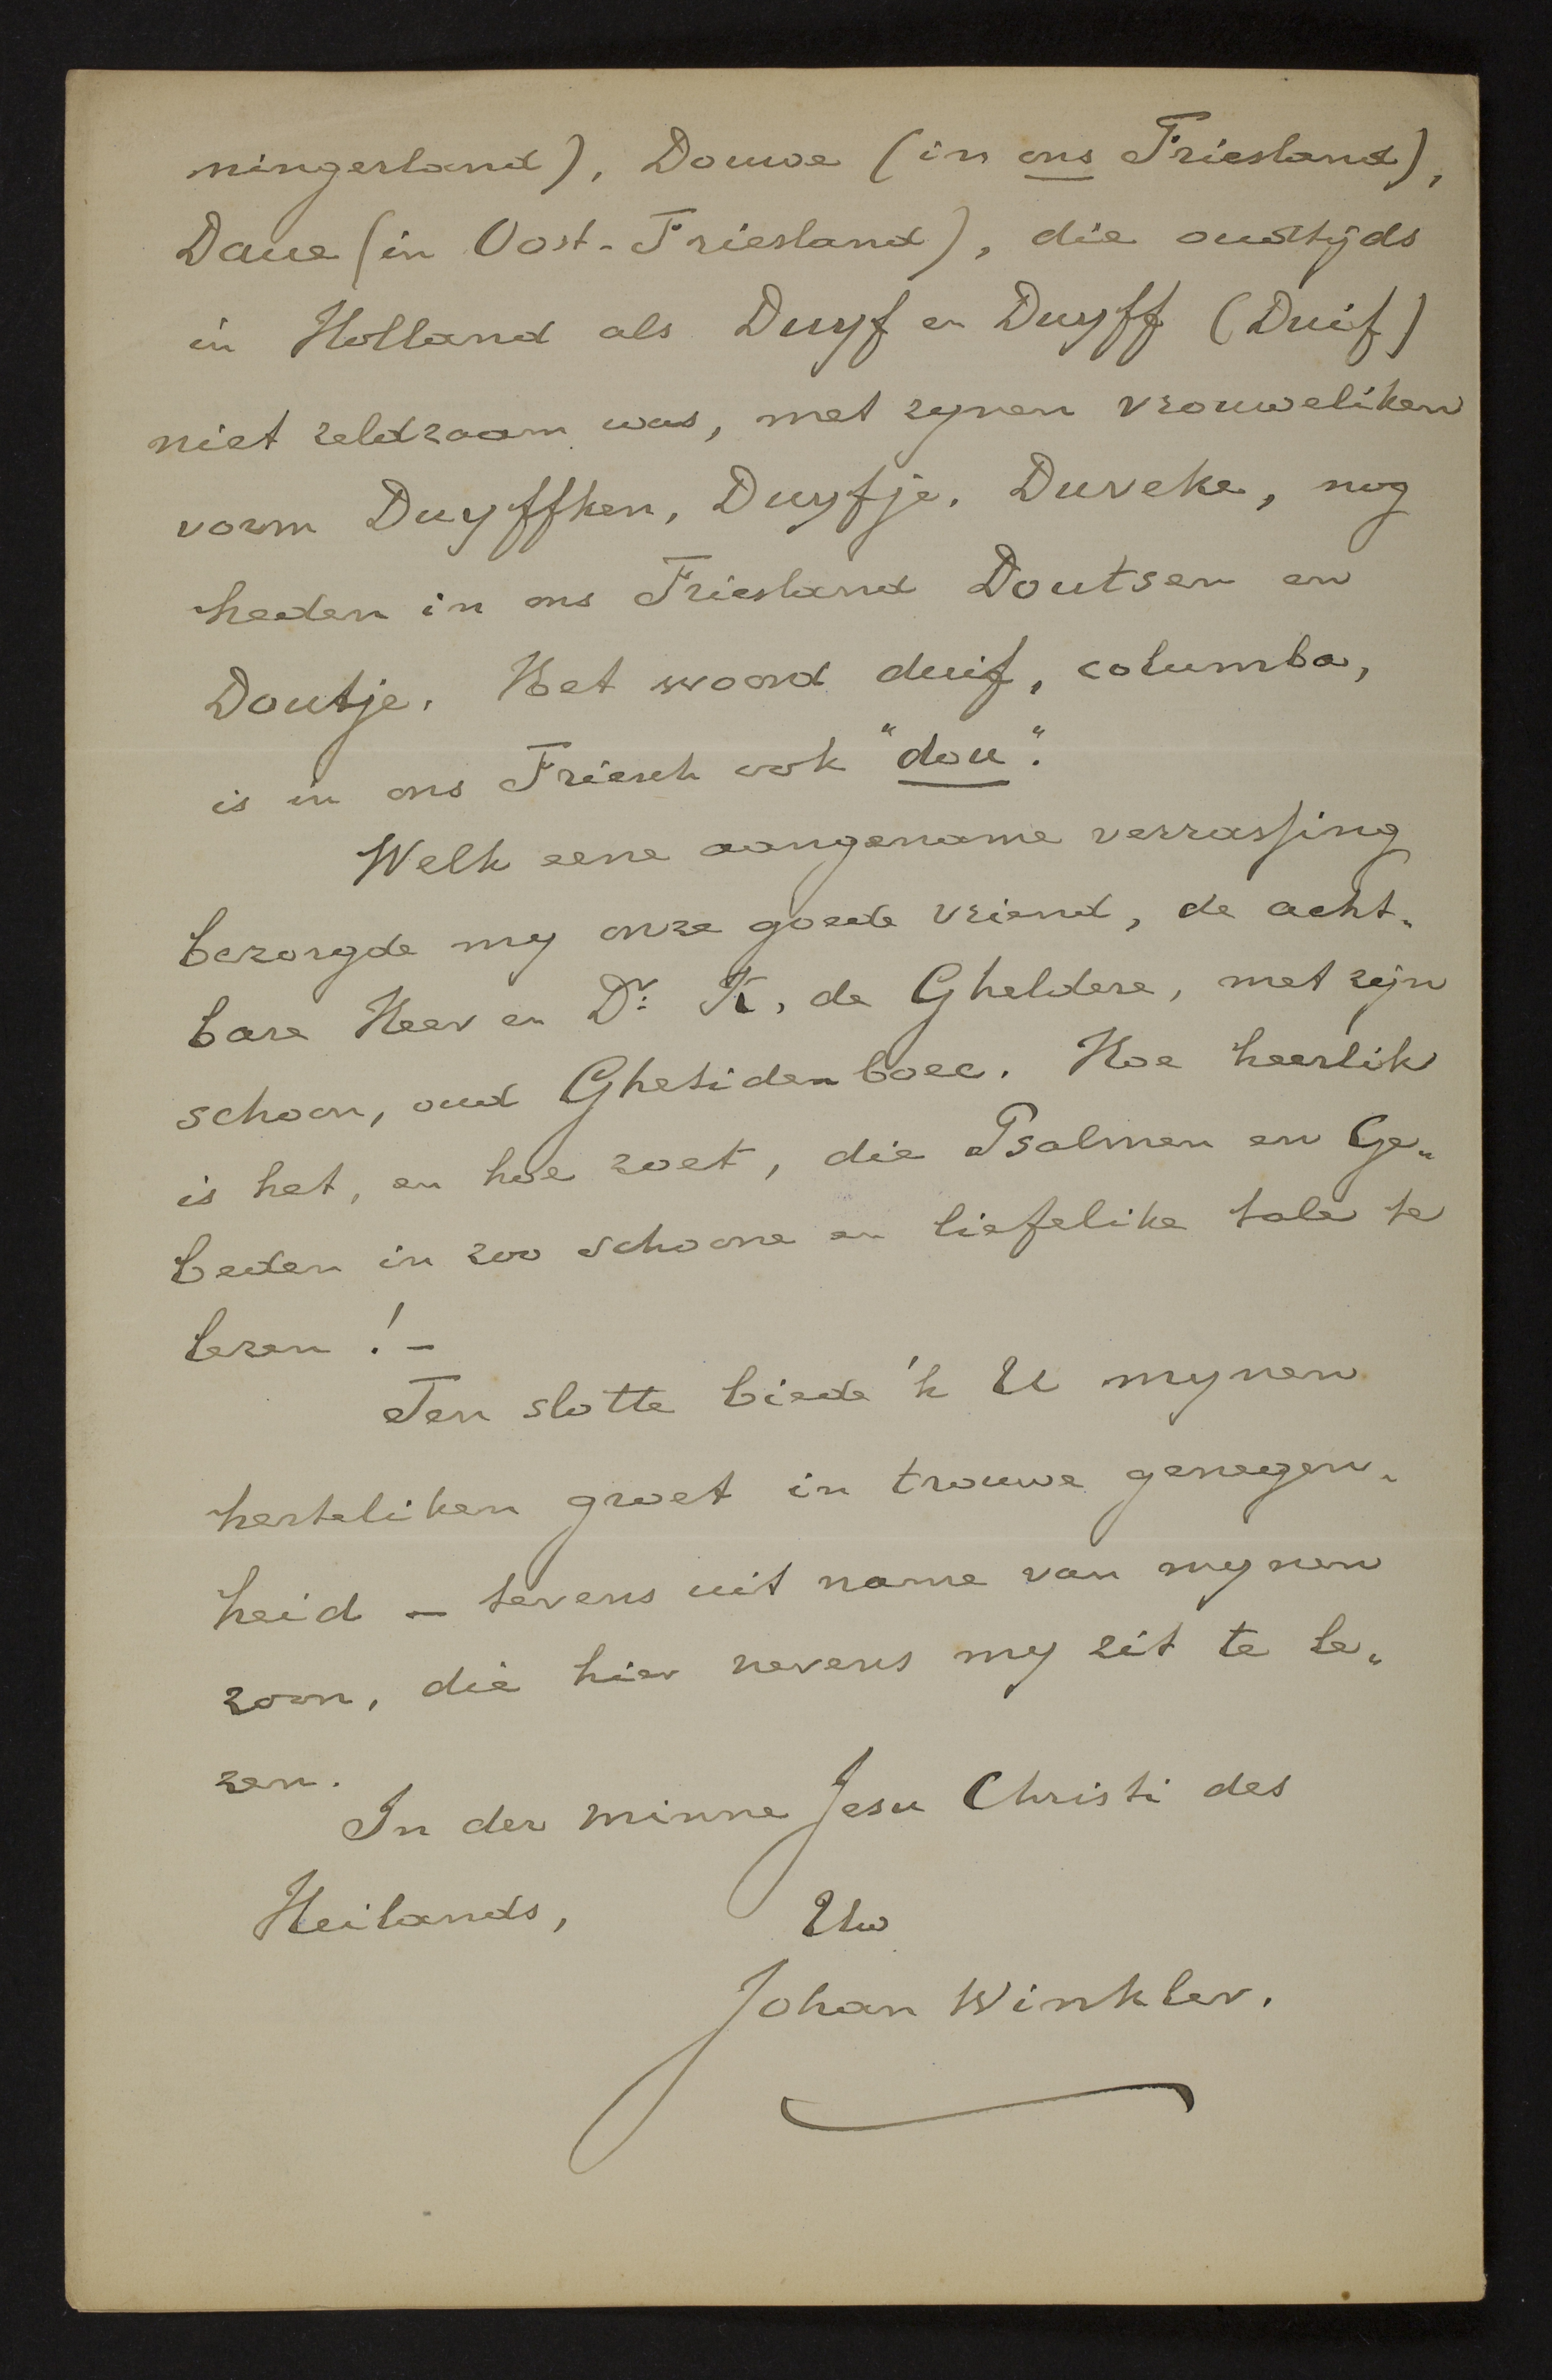 ningerland), Douwe (in ons Friesland),
Daue (in Oost-Friesland), die oudtijds
in Holland als Duyf en Duyff (Duif)
niet zeldzaam was, met zynen vrouweliken
vorm Duyffken, Duyfje, Duveke, nog
heden in ons Friesland Doutsen en
Doutje. Het woord duif, columba,
is in ons Friesch ook "dou".
Welk eene aangename verrassing
bezorgde my onze goede vriend, de acht-
bare Heer en Dr. K. de Gheldere, met zijn
schoon, oud Ghetidenboec. Hoe heerlik
is het, en hoe zoet, die Psalmen en Ge-
beden in zoo schoone en liefelike tale te
lezen! –
Ten slotte biede 'k U mynen
herteliken groet in trouwe genegen-
heid – tevens uit name van mynen
zoon, die hier nevens my zit te le-
zen.
In der minne Jesu Christi des
Heilands, Uw
Johan Winkler.